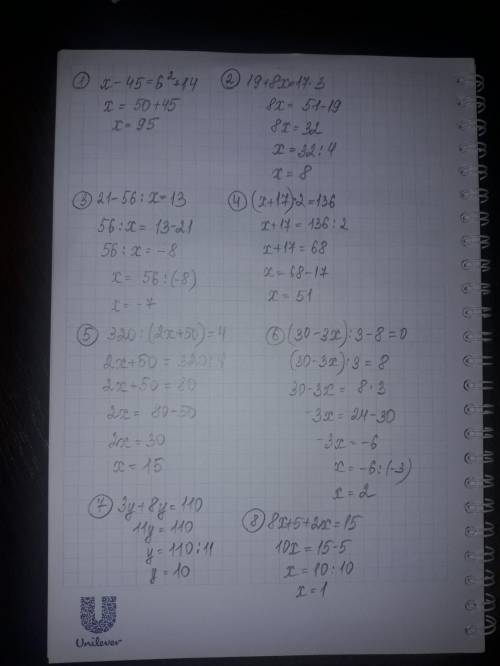 ① x - 45 = 6² + 14
x = 50 + 45
x = 95
② 19 + 8x = 17 · 3
8x = 51 - 19
8x = 32
x = 32 : 4
x = 8
③ 21 - 56 : x = 13
56 : x = 13 - 21
56 : x = -8
x = 56 : (-8)
x = -7
④ (x + 17) · 2 = 136
x + 17 = 136 : 2
x + 17 = 68
x = 68 - 17
x = 51
⑤ 320 : (2x + 50) = 4
2x + 50 = 320 : 4
2x + 50 = 80
2x = 80 - 50
2x = 30
x = 15
⑥ (30 - 3x) : 3 - 8 = 0
(30 - 3x) : 3 = 8
30 - 3x = 8 · 3
-3x = 24 - 30
-3x = -6
x = -6 : (-3)
x = 2
⑦ 3y + 8y = 110
11y = 110
y = 110 : 11
y = 10
⑧ 8x + 5 + 2x = 15
10x = 15 - 5
x = 10 : 10
x = 1
Unilever